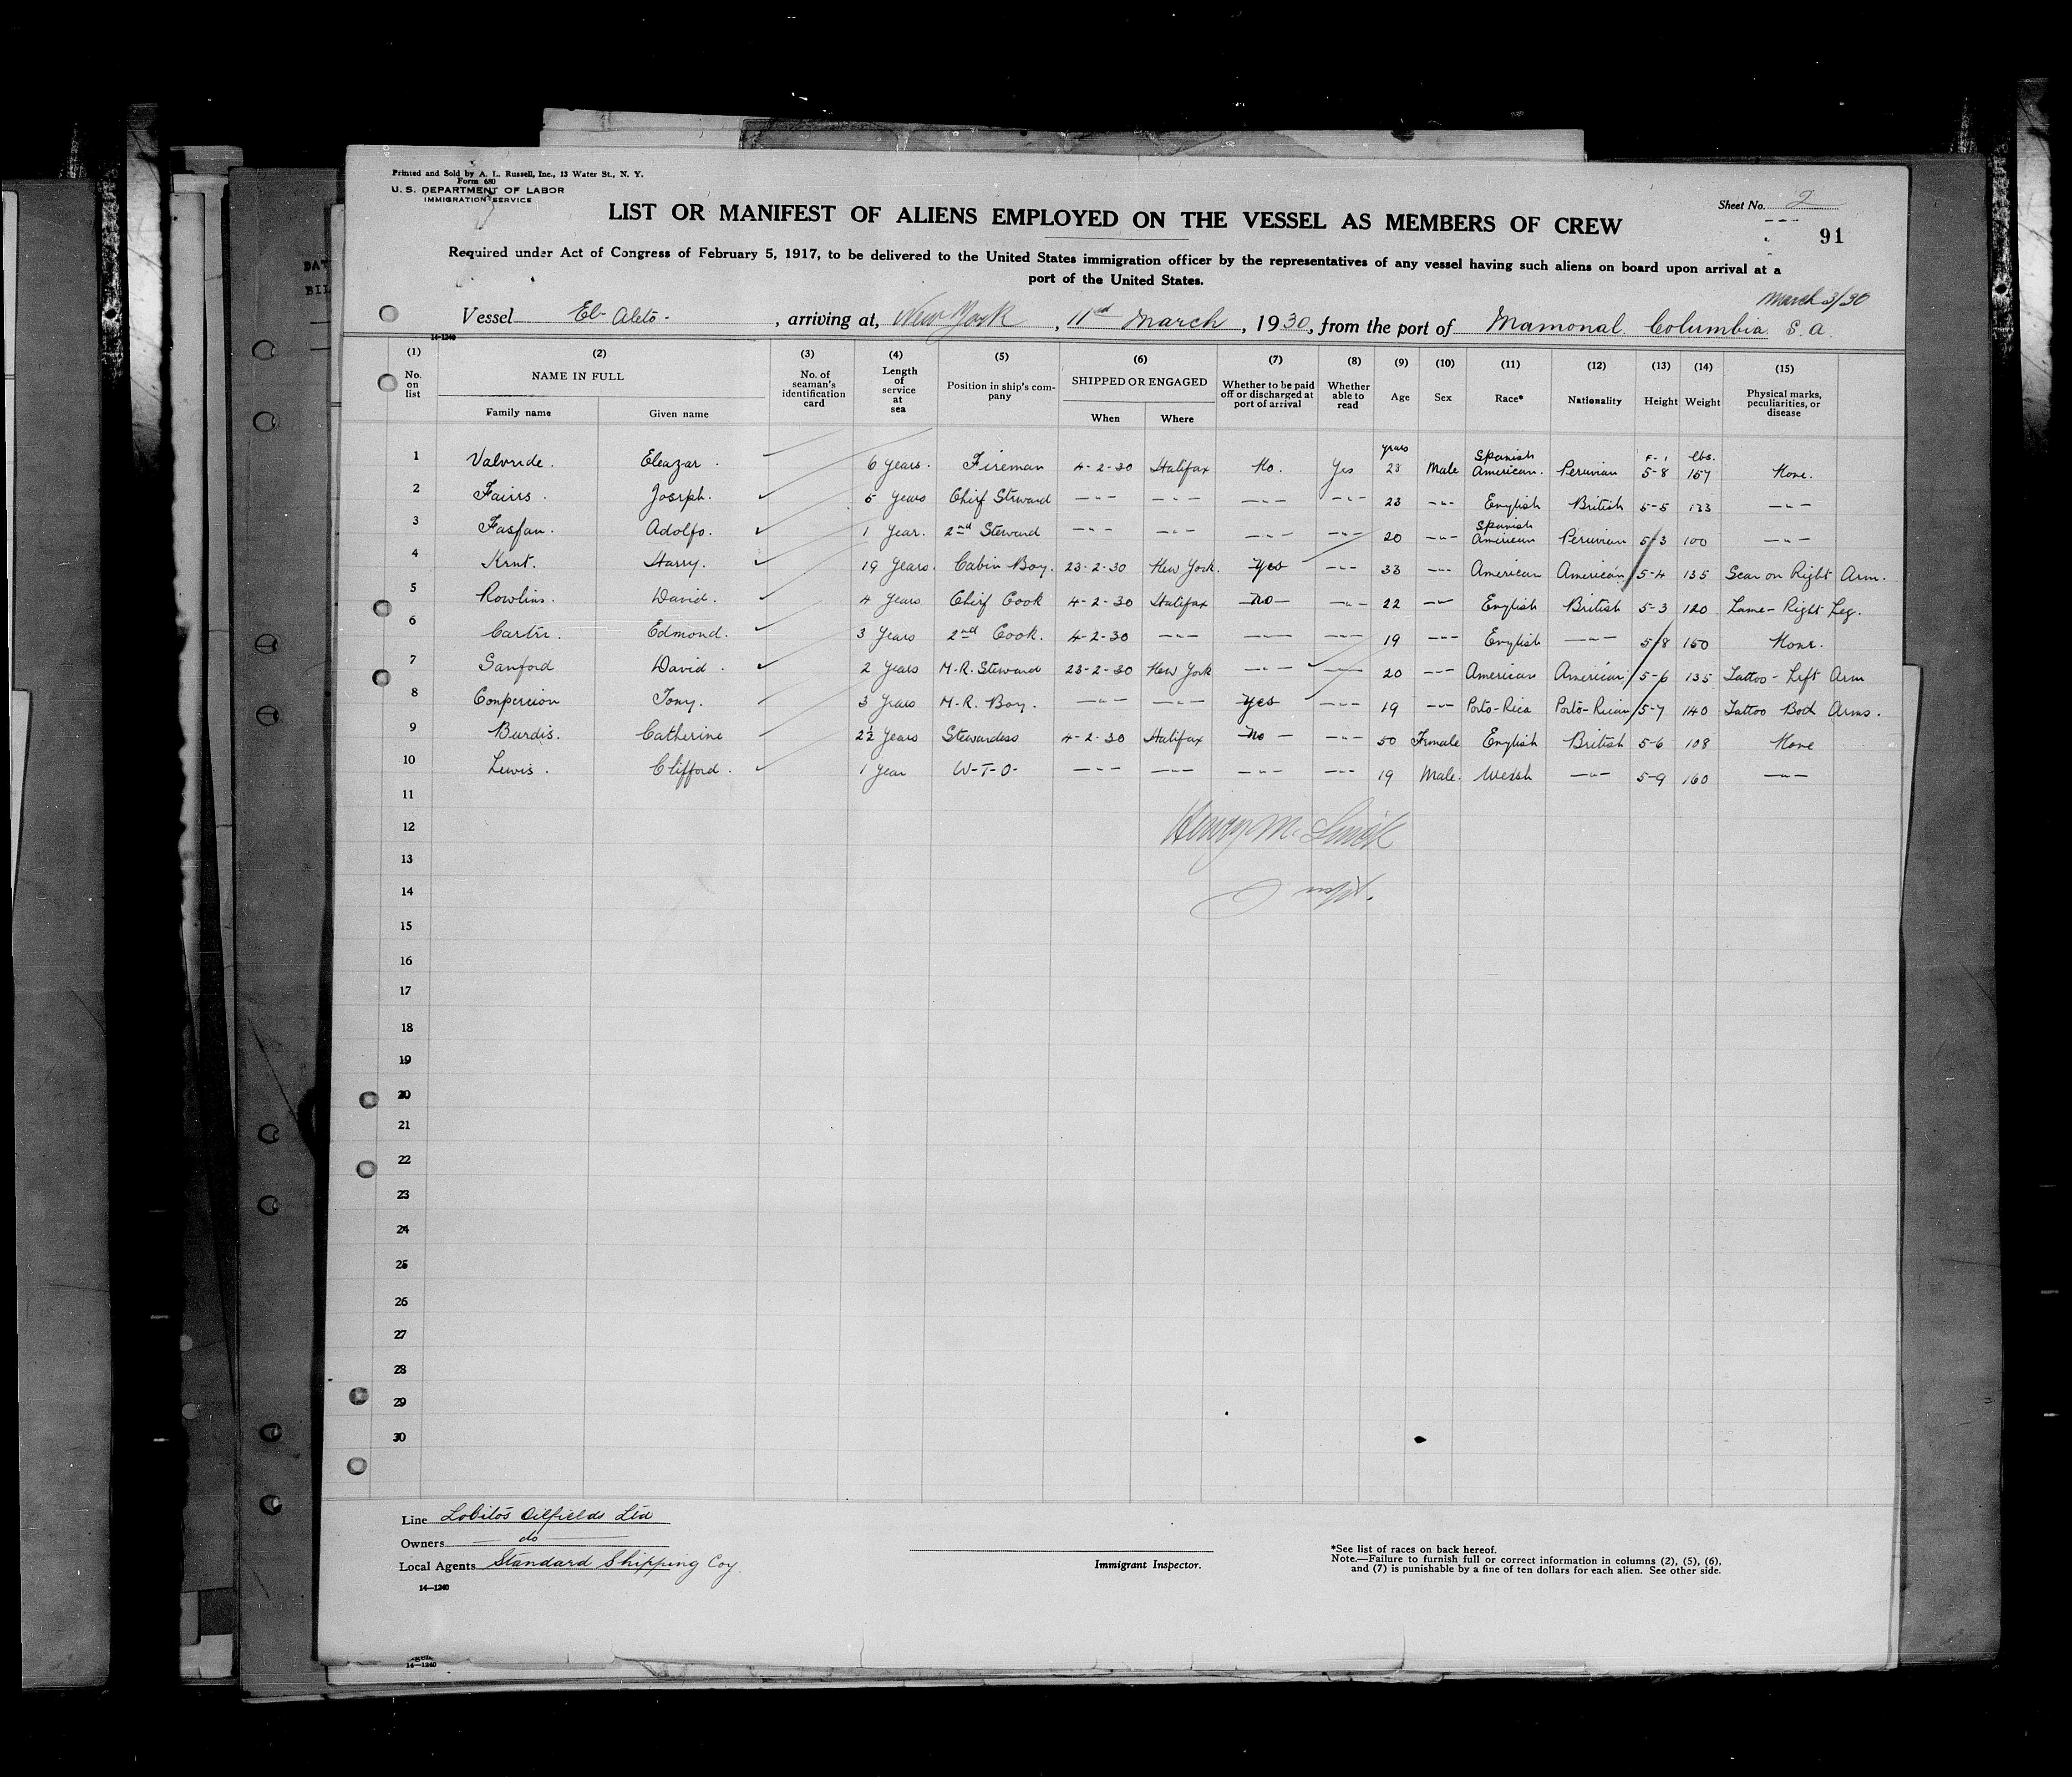 Printed and Sold by A. L. Russell, Inc., 13 Water St., N. Y.
Form 680
U. S. DEPARTMENT OF LABOR
IMMIGRATION SERVICE
Sheet No. 2
LIST OR MANIFEST OF ALIENS EMPLOYED ON THE VESSEL AS MEMBERS OF CREW
91
Required under Act of Congress of February 5, 1917, to be delivered to the United States immigration officer by the representatives of any vessel having such aliens on board upon arrival at a
port of the United States.
March 3/30
Vessel El Aleto, arriving at, New York, 11th March, 1930, from the port of Mamonal Columbia S. A.
14-1240
(1) (2) (3) (4) (5) (6) (7) (8) (9) (10) (11) (12) (13) (14) (15)
No. on list NAME IN FULL Family name Given name No. of seaman's identification card Length of service at sea Position in ship's company SHIPPED OR ENGAGED When Where Whether to be paid off or discharged at port of arrival Whether able to read Age Sex Race* Nationality Height Weight Physical marks, peculiarities, or disease
years F - I lbs.
1 Valvride. Eleazar. 6 years. Fireman 4-2-30 Halifax No. Yes 28 Male Spanish American. Peruvian 5-8 157 None.
2 Fairs. Joseph. 5 years Chief Steward -"- -"- -"- -"- 23 -"- English British 5-5 133 -"-
3 Fasfan. Adolfo. 1 year. 2nd Steward -"- -"- -"- -"- 20 -"- Spanish American Peruvian 5-3 100 -"-
4 Kent. Harry. 19 years. Cabin Boy. 23-2-30 New York. Yes -"- 33 -"- American American 5-4 135 Scar on Right Arm.
5 Rowlins. David. 4 years Chief Cook 4-2-30 Halifax No -"- 22 -"- English British 5-3 120 Lame- Right Leg.
6 Carter. Edmond. 3 years 2nd Cook. 4-2-30 -"- -"- -"- 19 -"- English -"- 5-8 150 None.
7 Sanford David. 2 years M.R. Steward 23-2-30 New York -"- -"- 20 -"- American American 5-6 135 Tattoo - Left Arm
8 Conpercion Tony. 3 years M.R. Boy. -"- -"- Yes -"- 19 -"- Porto-Rica Porto-Rican 5-7 140 Tattoo Both Arms.
9 Burdis. Catherine 2½ years Stewardess 4-2-30 Halifax No -"- 50 Female English British 5-6 108 None
10 Lewis. Clifford. 1 year W-T-O- -"- -"- -"- -"- 19 Male. Welsh -"- 5-9 160 -"-
11
12
13
14
15
16
17
18
19
20
21
22
23
24
25
26
27
28
29
30
Line Lobitos Oilfields Ltd
Owners do
Local Agents Standard Shipping Coy.
14-1240
Immigrant Inspector.
*See list of races on back hereof.
Note.—Failure to furnish full or correct information in columns (2), (5), (6),
and (7) is punishable by a fine of ten dollars for each alien. See other side.
14-1240